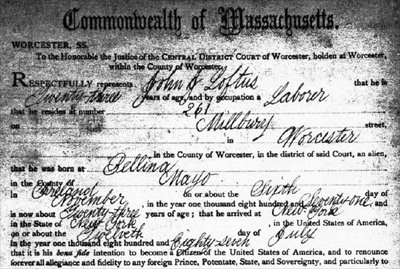 Commonwealth of Massachusetts.
WORCESTER, SS.
To the Honorable the Justice of the CENTRAL DISTRICT COURT of Worcester, holden at Worcester,
within the County of Worcester.
RESPECTFULLY represents John J Loftus that he is
Twenty-three years of age, and by occupation a Laborer
that he resides at number 261
Millbury street,
in Worcester
in the County of Worcester, in the district of said Court, an alien,
that he was born at
in the County of Mayo
Ireland on or about the Sixth day of
November, in the year one thousand eight hundred and Seventy-one, and
is now about Twenty three years of age; that he arrived at New York
in the State of New York, in the United States of America,
on or about the day of July
in the year one thousand eight hundred and Eighty-seven
that it is his bona fide intention to become a Citizen of the United States of America, and to renounce
forever all allegiance and fidelity to any foreign Prince, Potentate, State, and Sovereignty, and particularly to